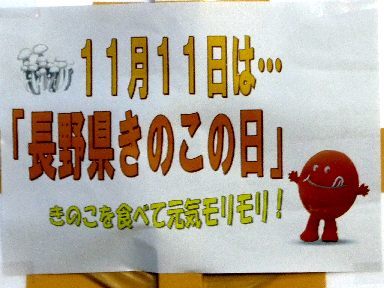 11月11日は…
「長野県きのこの日」
きのこを食べて元気モリモリ!